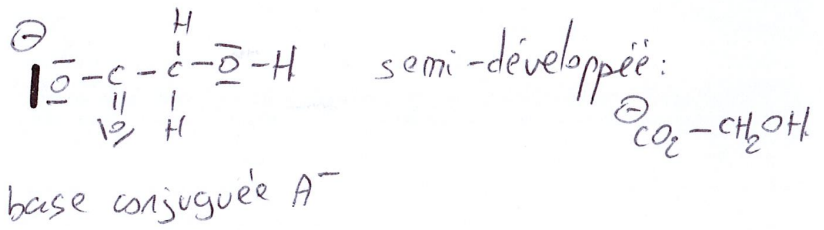 H
⊖
|O – C – C – O – H semi-développéë:
|| 
O H
⊖CO₂ – CH₂OH
base conjuguée A⁻